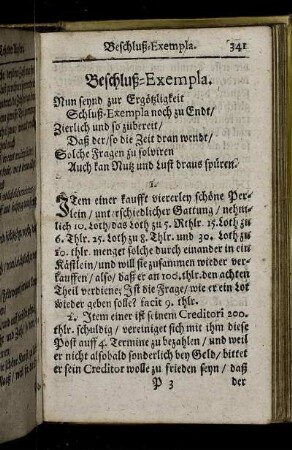 Beschluß-Exempla. 341
Beschluß-Exempla.
Nun seynd zur Ergötzligkeit
Schluß-Exempla noch zu Endt/
Zierlich und so zübereit/
Daß der/so die Zeit dran wendt/
Solche Fragen zu solviren
Auch kan Nutz und Lust draus spüren.
1.
ITem einer kaufft viererley schöne Per-
lein/ unterschiedlicher Gattung/ nehm-
lich 10. Loth/ das Loth zu 5. Rthlr. 15. Loth zu
6. Thlr. 25. Loth zu 8. Thlr. und 30. Loth zu
10. thlr. menget solche durch einander in ein
Kästlein/ und will sie zusammen wieder ver-
kauffen/ also/ daß er an 100. thlr. den achten
Theil verdiene; Ist die Frage/ wie er ein Lot
wieder geben solle? facit 9. thlr.
2. Item einer ist seinem Creditori 200.
thlr. schuldig/ vereiniget sich mit ihm diese
Post auff 4. Termine zu bezahlen/ und weil
er nicht alsobald sonderlich bey Geld/ bittet
er sein Creditor wolle zu frieden seyn/ daß
P 3 der